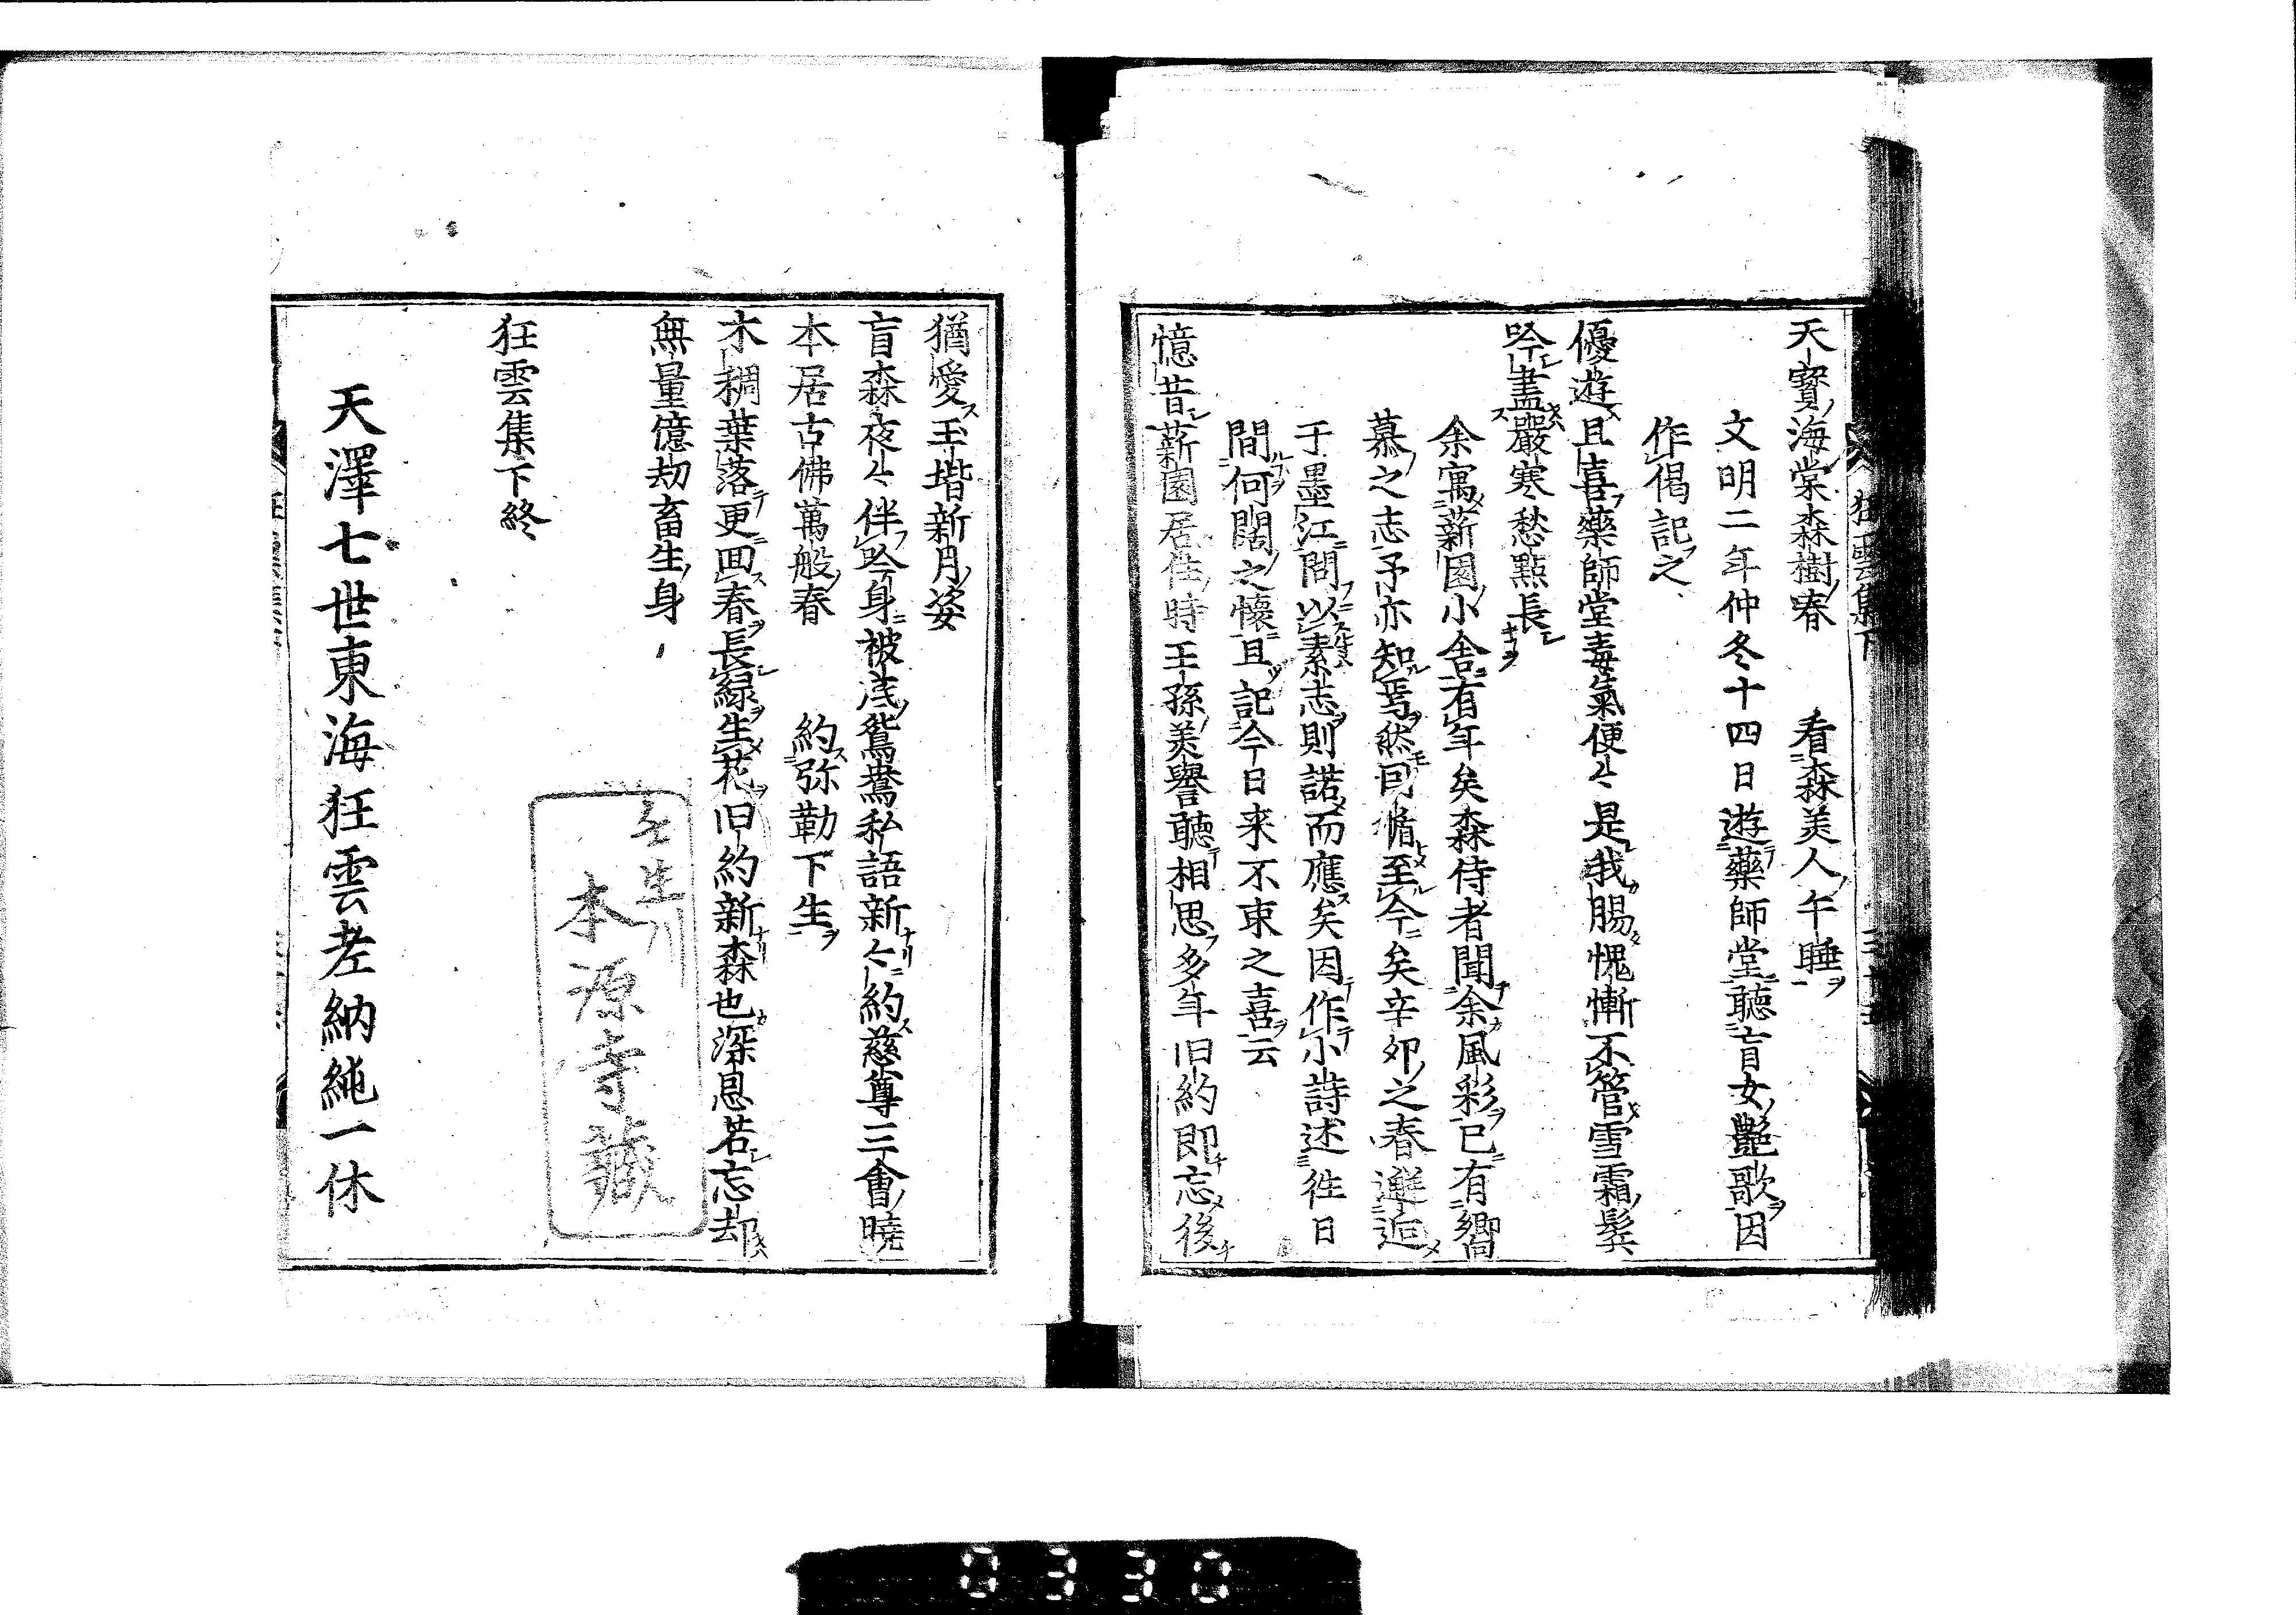 天寶海棠森樹春　　看森美人午睡
文明二年仲冬十四日遊藥師堂聽盲女艶歌因
作偈記之
優遊且喜藥師堂毒氣便々是我腸愧慚不管雪霜鬂
吟盡嚴寒愁點長
余寓薪園小舎有年矣森侍者聞余風彩已有嚮
慕之志予亦知焉然囘惰至今矣辛夘之春邂逅
于墨江問以素志則諾而應矣因作小詩述徃日
間何闊之懐且記今日来不束之喜云
憶昔薪園居住時王孫美譽聽相思多年旧約即忘後
猶愛玉堦新月姿
盲森夜々伴吟身被底鴛鴦私語新々約慈尊三會曉
本居古佛萬般春　　約弥勒下生
木稠葉落更囬春長緑生花旧約新森也深恩若忘却
無量億劫畜生身
狂雲集下終
壬生
本源寺藏
天澤七世東海狂雲老納純一休
0330